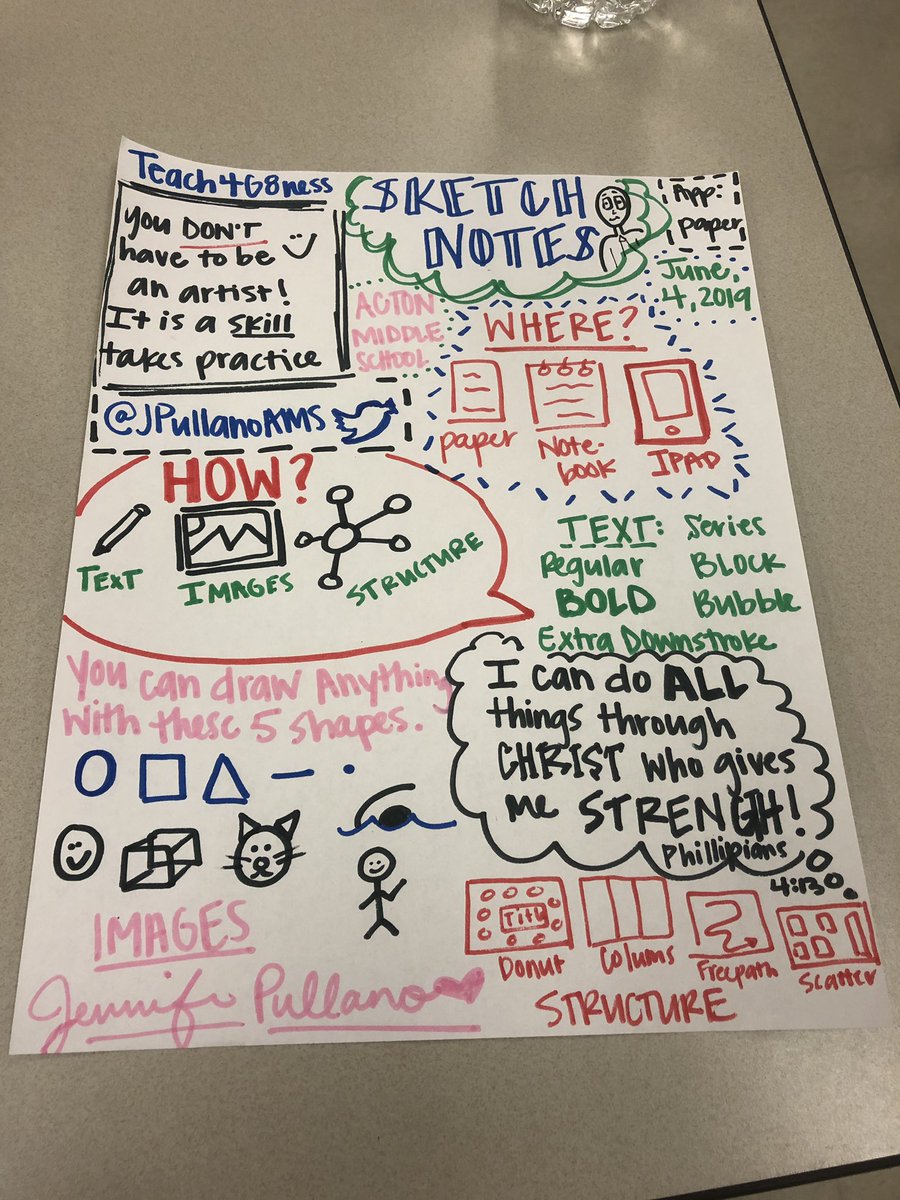 Teach4G8ness
you DON'T
have to be
an artist!
It is a skill
takes practice
SKETCH
NOTES
App:
paper
June,
4, 2019
ACTON
MIDDLE
SCHOOL
@JPullanoAMS
WHERE?
paper
Note-
book
IPAD
HOW?
TEXT
IMAGES
STRUCTURE
TEXT: Series
Regular BLOCK
BOLD Bubble
Extra Downstroke
You can draw Anything
with these 5 shapes.
I can do ALL
things through
CHRIST who gives
me STRENGH!
Phillipians
4:13
IMAGES
Jennifer Pullano
Title
Donut
Colums
Freepath
Scatter
STRUCTURE